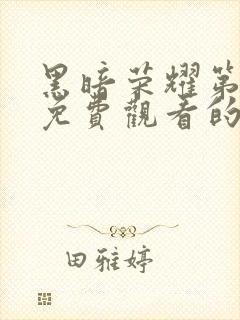 黑暗荣耀第
免費觀看的
田雅婷